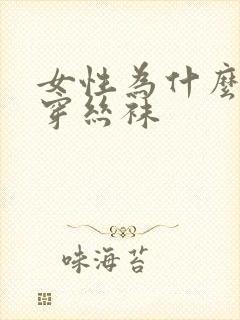 女性為什麼
穿絲袜
味海苔